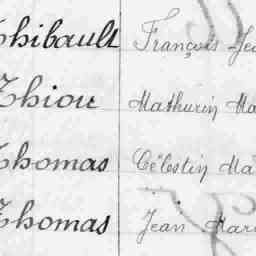 Thibault François Je
Thiou Mathurin Ma
Thomas Célestin Ma
Thomas Jean Mari